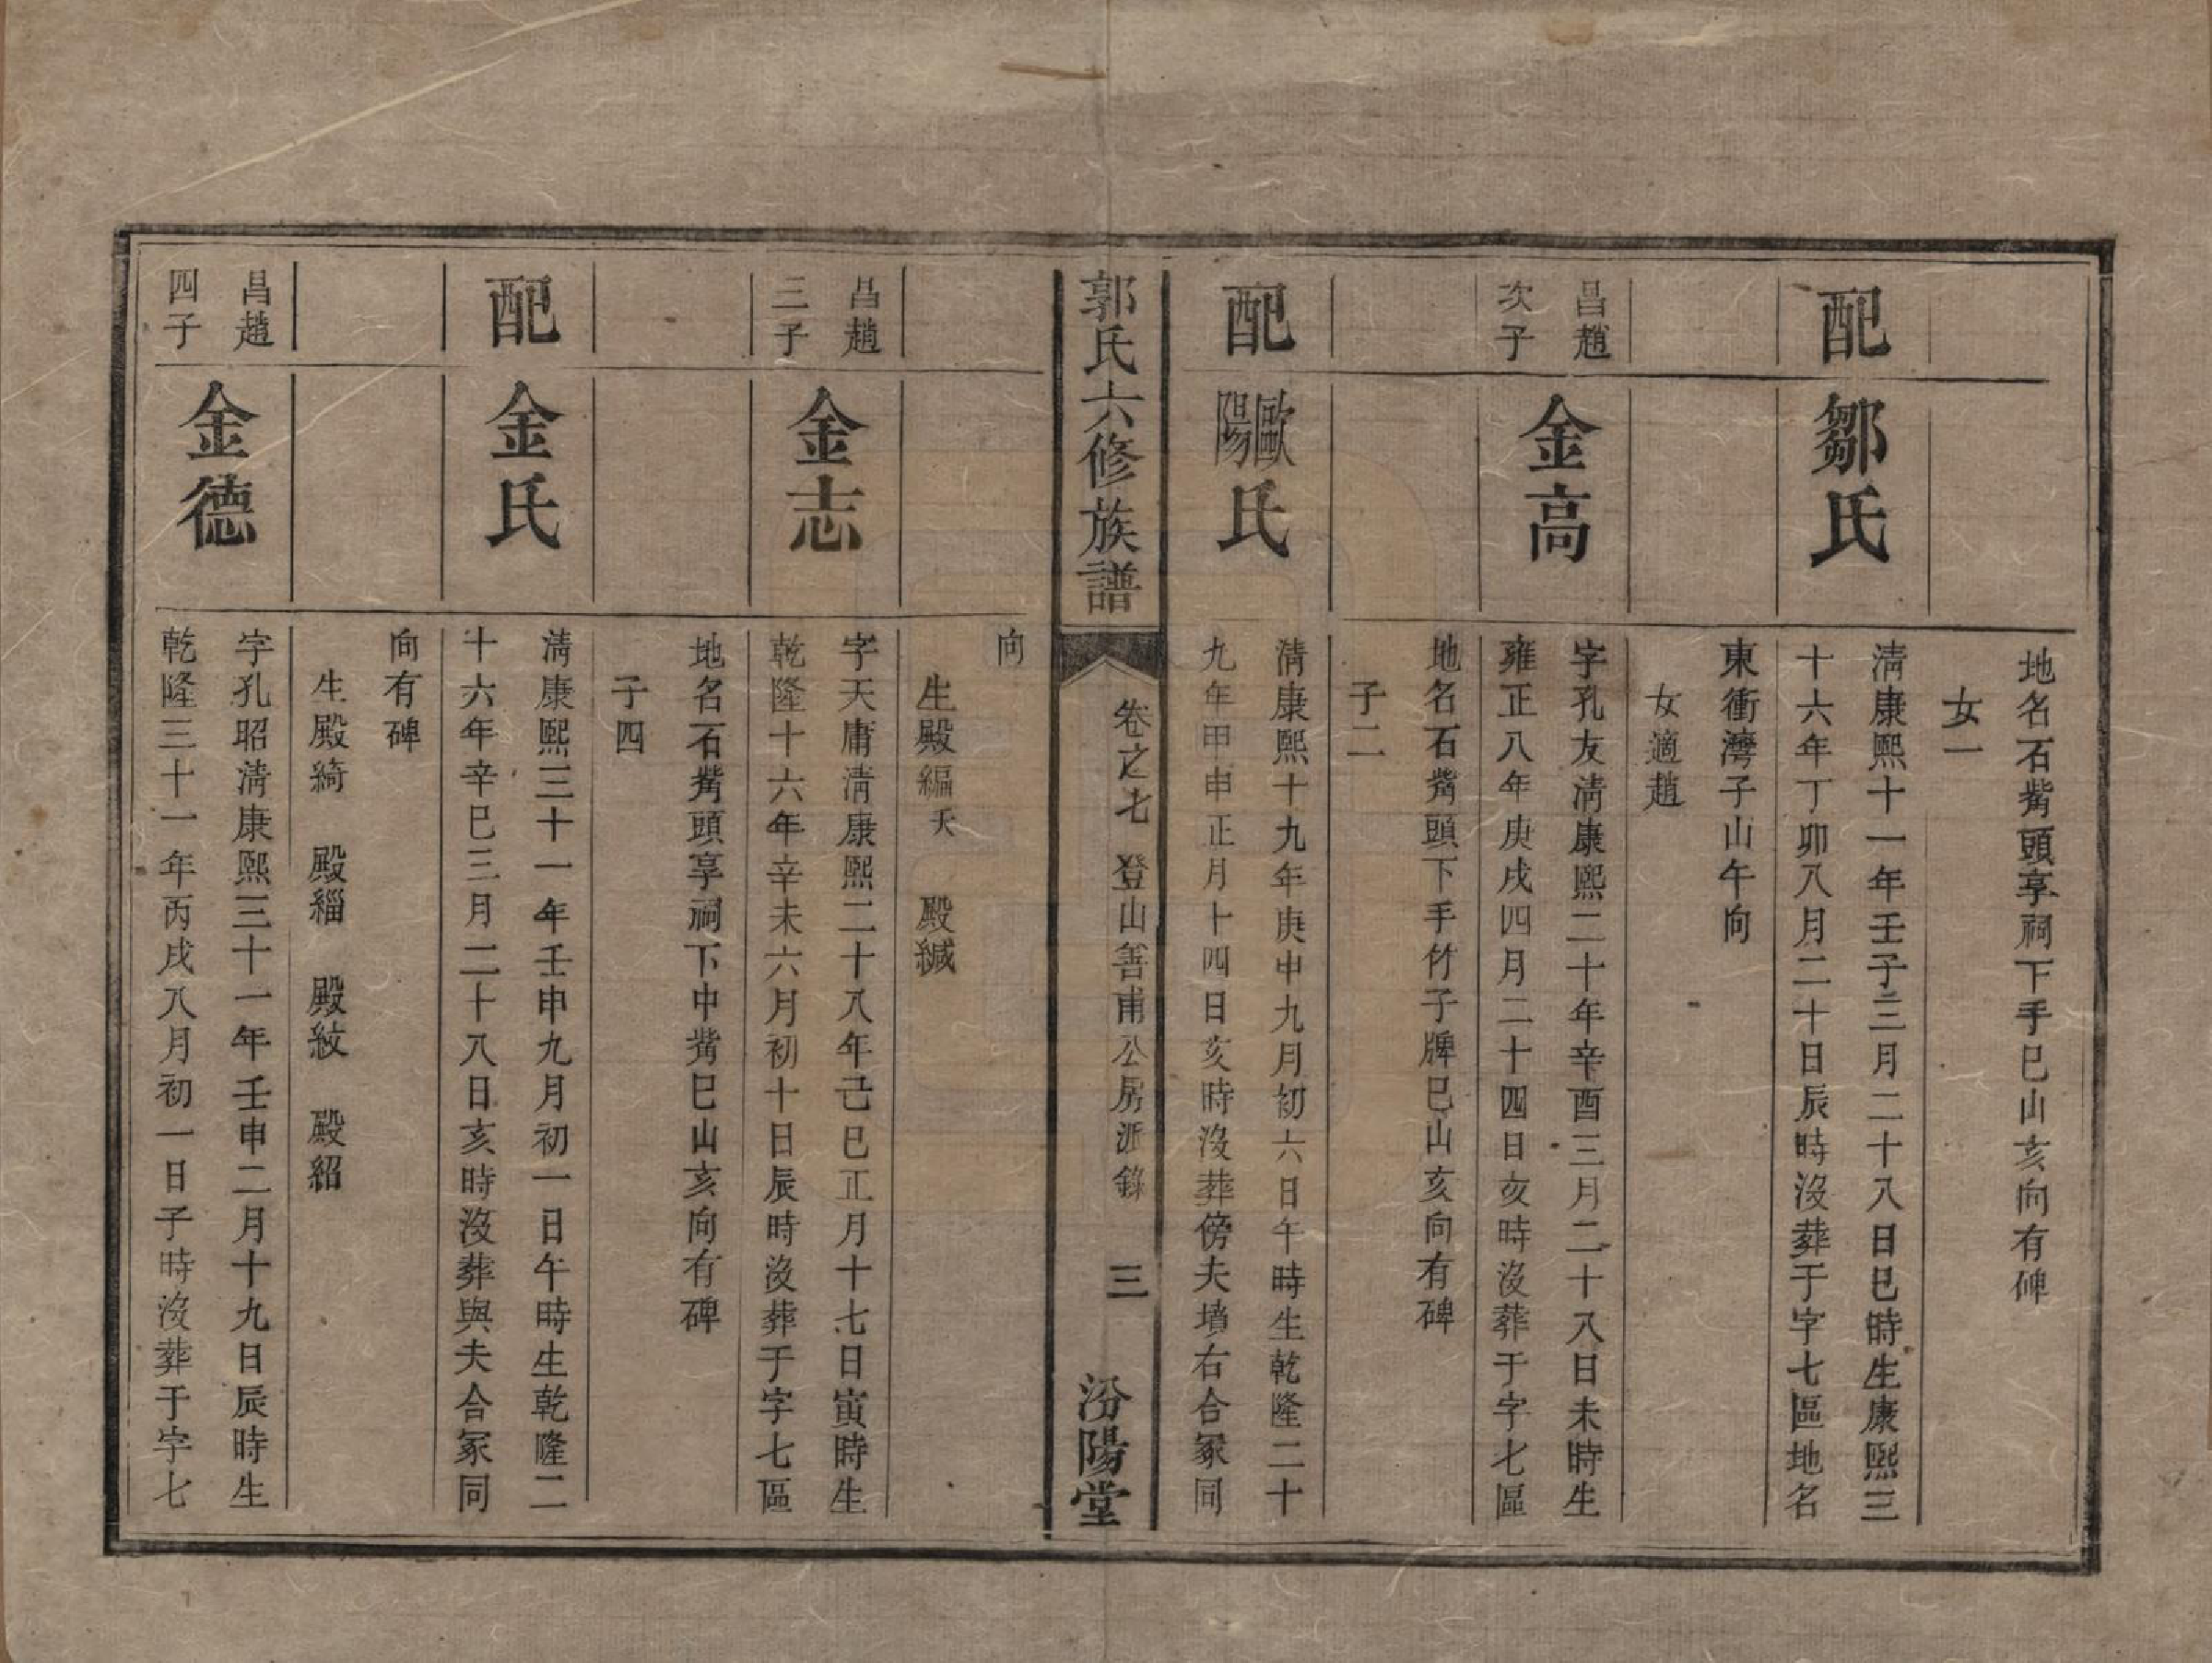 地名石觜頭享祠下手巳山亥向有碑
女一
配
鄒氏
清康熙十一年壬子三月二十八日巳時生康熙三
十六年丁卯八月二十日辰時沒葬于字七區地名
東衝灣子山午向
女適趙
昌趙
次子
金高
字孔友淸康熙二十年辛酉三月二十八日未時生
雍正八年庚戌四月二十四日亥時沒葬于字七區
地名石觜頭下手竹子牌巳山亥向有碑
子二
配
歐陽氏
清康熙十九年庚申九月初六日午時生乾隆二十
九年甲申正月十四日亥時沒葬傍夫墳右合冢同
郭氏六修族譜
卷之七 登山善甫公房派錄 三
汾陽堂
向
生殿編夭 殿緘
昌趙
三子
金志
字天庸淸康熙二十八年己巳正月十七日寅時生
乾隆十六年辛未六月初十日辰時沒葬于字七區
地名石觜頭享祠下中觜巳山亥向有碑
子四
配
金氏
淸康熙三十一年壬申九月初一日午時生乾隆二
十六年辛巳三月二十八日亥時沒葬與夫合冢同
向有碑
生殿綺 殿緇 殿紋 殿紹
昌趙
四子
金德
字孔昭淸康熙三十一年壬申二月十九日辰時生
乾隆三十一年丙戌八月初一日子時沒葬于字七